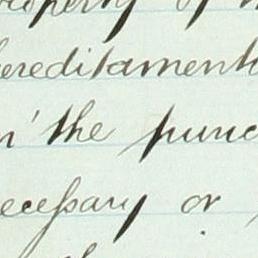 property of
hereditament
in the punc
ecessary or